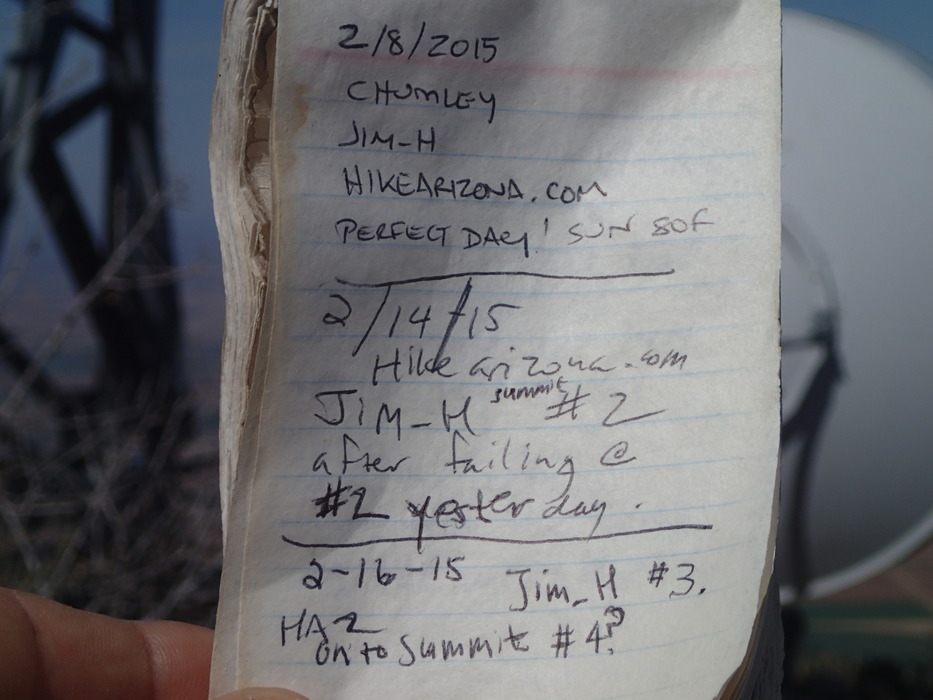 2/8/2015
CHUMLEY
JIM-H
HIKEARIZONA.COM
PERFECT DAY! SUN 80F
2/14/15
Hikearizona.com
JIM_H summit #2
after failing @
#2 yesterday.
2-16-15 Jim_H #3.
HAZ
on to Summit #4?